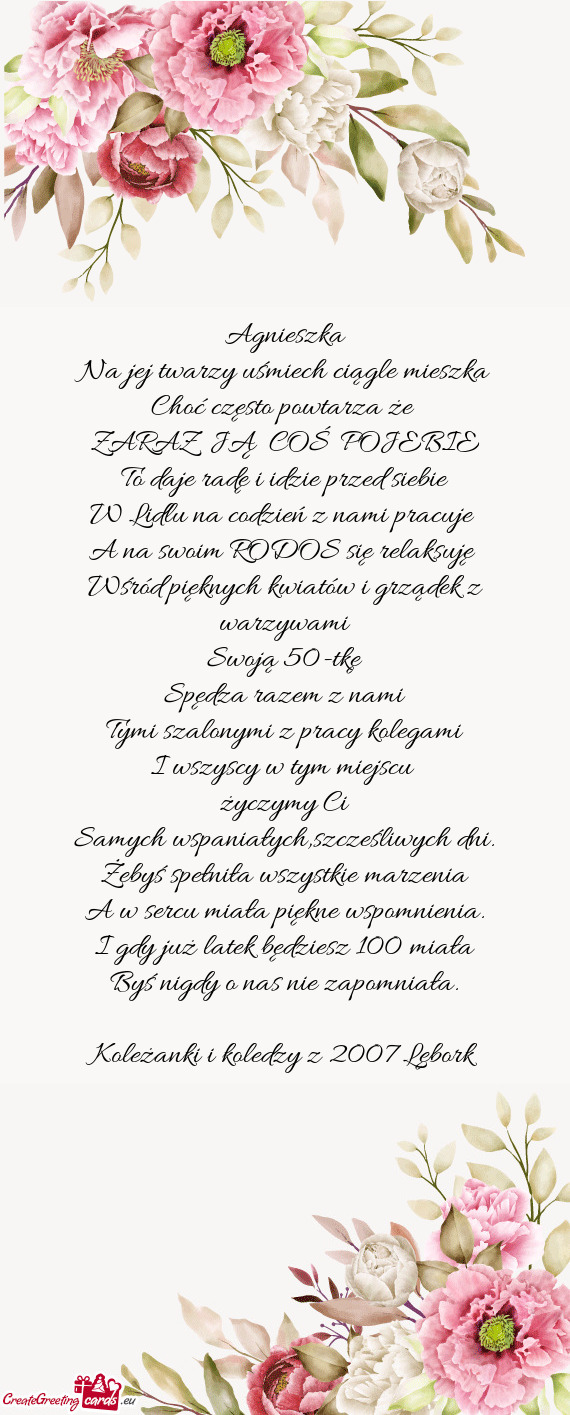 Agnieszka
Na jej twarzy uśmiech ciągle mieszka
Choć często powtarza że
ZARAZ JĄ COŚ POJEBIE
To daje radę i idzie przed siebie
W Lidlu na codzień z nami pracuje
A na swoim RODOS się relaksuję
Wśród pięknych kwiatów i grządek z
warzywami
Swoją 50-tkę
Spędza razem z nami
Tymi szalonymi z pracy kolegami
I wszyscy w tym miejscu
życzymy Ci
Samych wspaniałych,szcześliwych dni.
Żebyś spełniła wszystkie marzenia
A w sercu miała piękne wspomnienia.
I gdy już latek będziesz 100 miała
Byś nigdy o nas nie zapomniała.
Koleżanki i koledzy z 2007 Lębork
CreateGreeting cards .eu